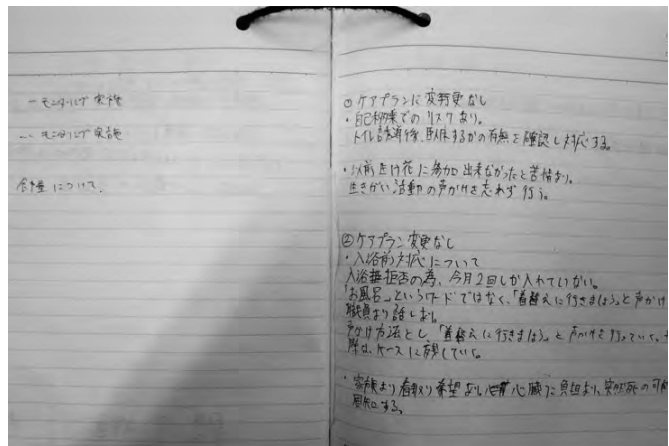 モニタリング実施
モニタリング実施
食事量について、
① ケアプランに変更なし
・自己移乗でのリスクあり。
トイレ誘導後、臥床するかの有無を確認し対応する。
・以前生け花に参加出来なかったと苦情あり。
生きがい活動の声かけを忘れず行う。
②ケアプラン変更なし
・入浴前対応について
入浴拒否の為、今月2回しか入れていない。
「お風呂」というワードではなく、「着替えに行きましょう」と声かけ
職員より話しあり。
声かけ方法とし、「着替えに行きましょう」と声かけを行っていく。
際は、ケースに残していく。
・家族より看取り希望あり。心臓に負担あり、突然死の可能
周知する。